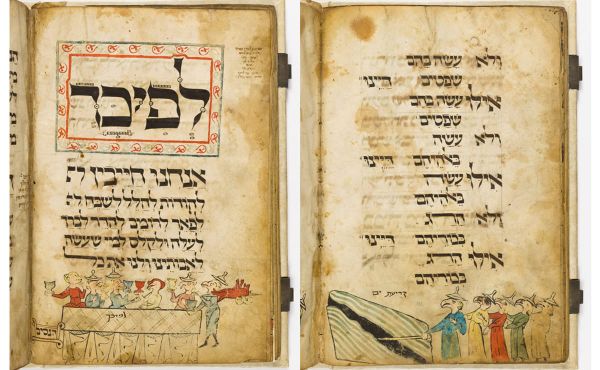 לפיכך
אנחנו חייבין ל
להודות להלל לשבח ל
לפאר לרומם להדר לברך
לעלה ולקלס למי שעשה
לאבותינו ולנו את כל
הנסים
לפיכך
ולא עשה בהם
שפטים דיינו
אילו עשה בהם
שפטים
ולא עשה
באלהיהם דיינו
אילו עשה
באלהיהם
ולא הרג
בכוריהם דיינו
אילו הרג
בכוריהם
קריעת ים